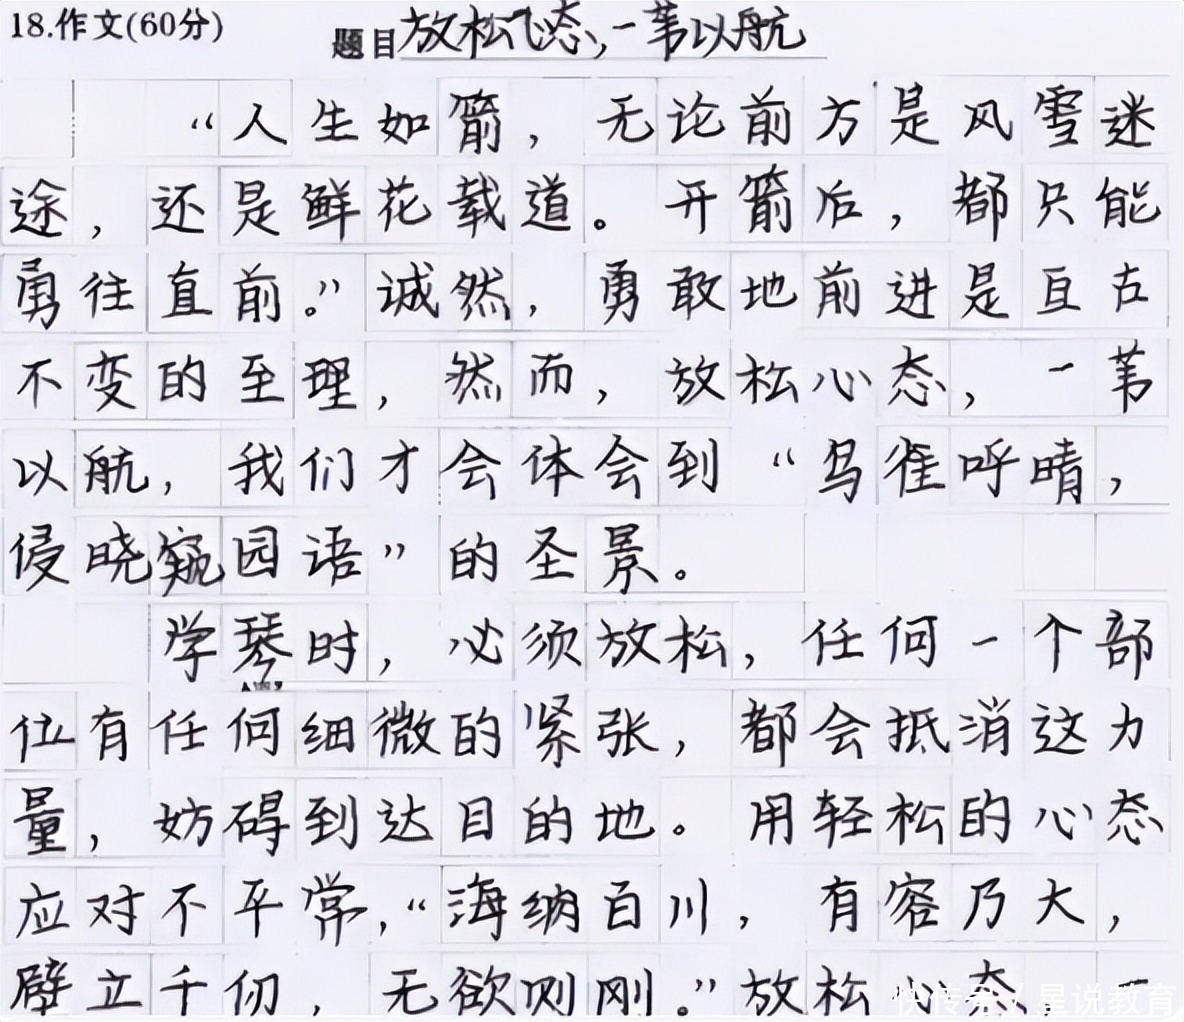 18.作文(60分)
题目放松心态,一苇以航
“人生如箭，无论前方是风雪迷
途，还是鲜花载道。开箭后，都只能
勇往直前。”诚然，勇敢地前进是亘古
不变的至理，然而，放松心态，一苇
以航，我们才会体会到“鸟雀呼晴，
侵晓窥园语”的圣景。
学琴时，必须放松，任何一个部
位有任何细微的紧张，都会抵消这力
量，妨碍到达目的地。用轻松的心态
应对不平常，“海纳百川，有容乃大，
壁立千仞，无欲则刚。”放松心态 一
快传号/星说教育